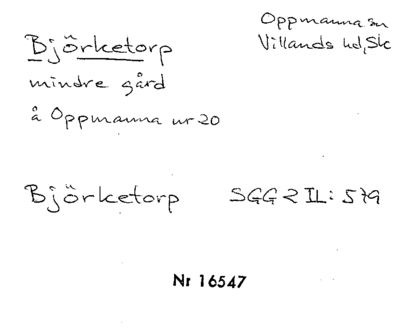 Björketorp
Oppmanna sn
Villands hd, Sk
mindre gård
å Oppmanna nr 20
Björketorp SGG 2 II: 579
Nr 16547